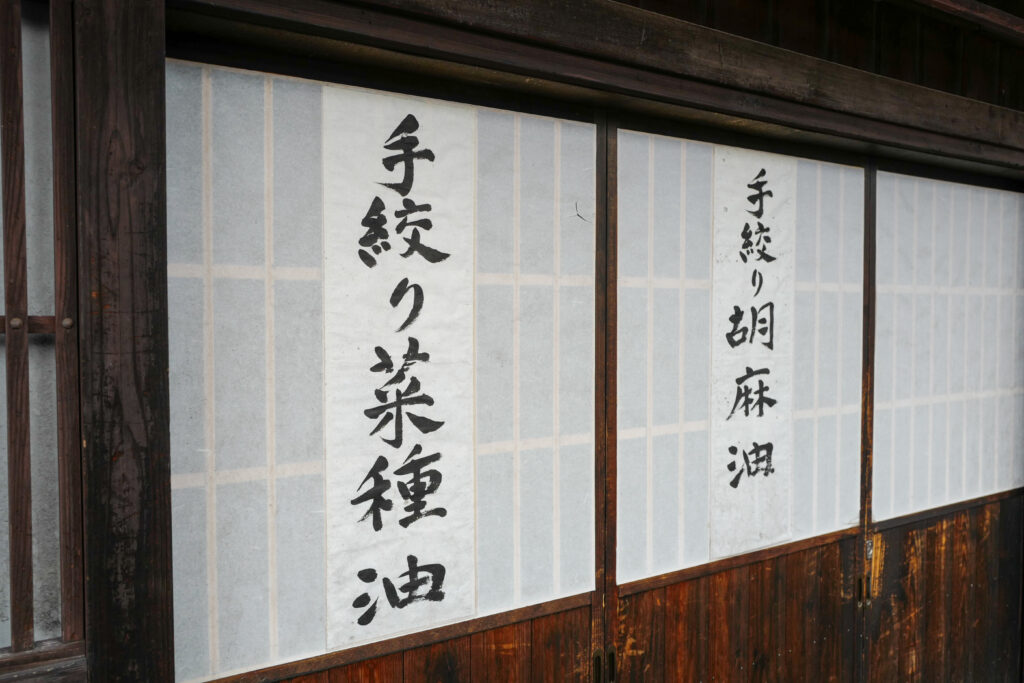 手絞り菜種油
手絞り胡麻油